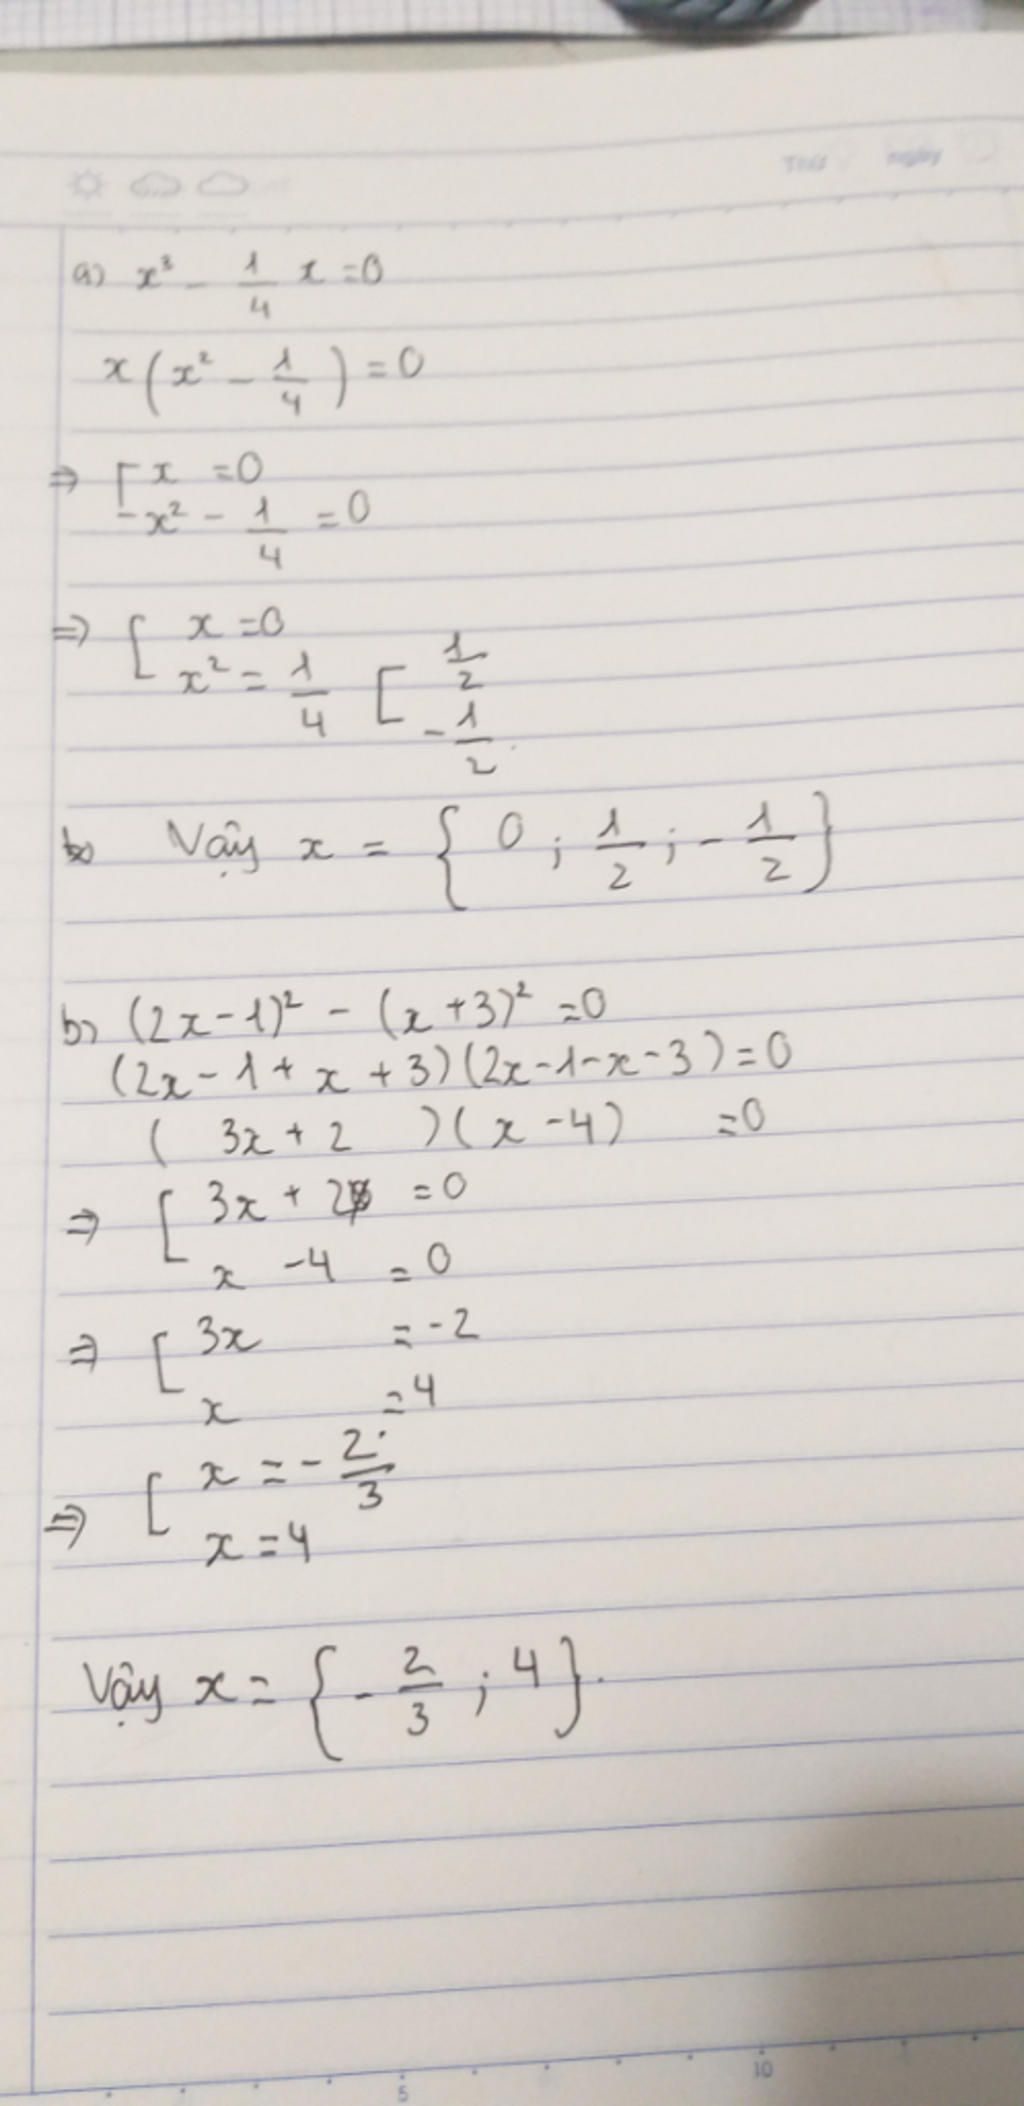 a) x³ - 1/4 x = 0
x(x² - 1/4) = 0
=> [ x = 0
x² - 1/4 = 0
=> [ x = 0
x² = 1/4 [ 1/2
- 1/2
Vậy x = { 0 ; 1/2 ; - 1/2 }
b) (2x - 1)² - (x + 3)² = 0
(2x - 1 + x + 3)(2x - 1 - x - 3) = 0
( 3x + 2 )( x - 4) = 0
=> [ 3x + 2 = 0
x - 4 = 0
=> [ 3x = -2
x = 4
=> [ x = - 2/3
x = 4
Vậy x = { - 2/3 ; 4 }.
5 10